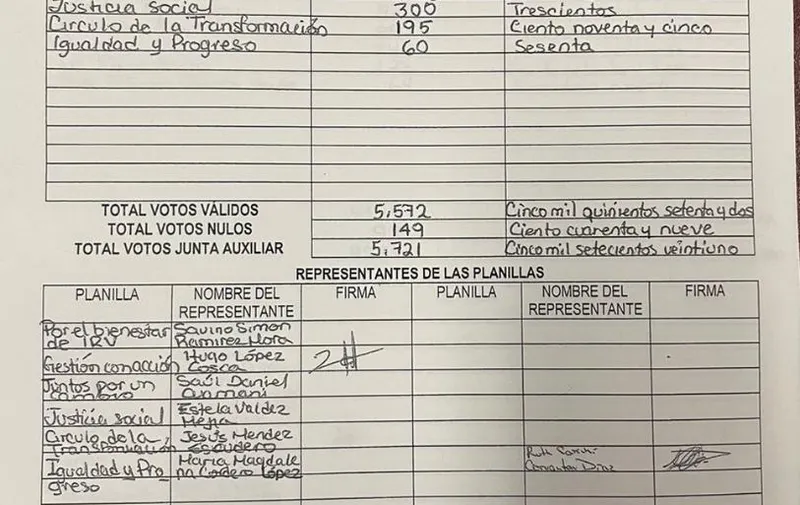 Justicia social 300 Trescientos
Circulo de la Transformación 195 Ciento noventa y cinco
Igualdad y Progreso 60 Sesenta
TOTAL VOTOS VÁLIDOS 5,572 Cinco mil quinientos setenta y dos
TOTAL VOTOS NULOS 149 Ciento cuarenta y nueve
TOTAL VOTOS JUNTA AUXILIAR 5,721 Cinco mil setecientos veintiuno
REPRESENTANTES DE LAS PLANILLAS
PLANILLA NOMBRE DEL FIRMA PLANILLA NOMBRE DEL FIRMA
REPRESENTANTE REPRESENTANTE
Por el bienestar Savino Simon
de IRV Ramirez Mora
Gestión con acción Hugo López
Juntos por un Saúl Daniel
cambio
Justicia social Estela Valdez
Mejia
Circulo de la Jesús Mendez
Transformación Escudero
Igualdad y Pro Maria Magdale Ruth
greso na Cordero López Diaz